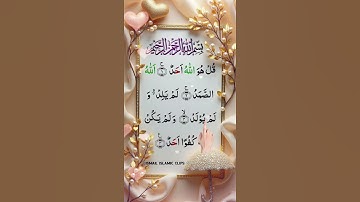 بِسْمِ اللهِ الرَّحْمٰنِ الرَّحِيْمِ
قُلْ هُوَ اللّٰهُ اَحَدٌ ۚ ۝ اَللّٰهُ
الصَّمَدُ ۚ ۝ لَمْ يَلِدْ ۙ وَ
لَمْ يُوْلَدْ ۙ ۝ وَلَمْ يَكُنْ
كُفُوًا اَحَدٌ ۝
ISMAIL ISLAMIC CLIPS